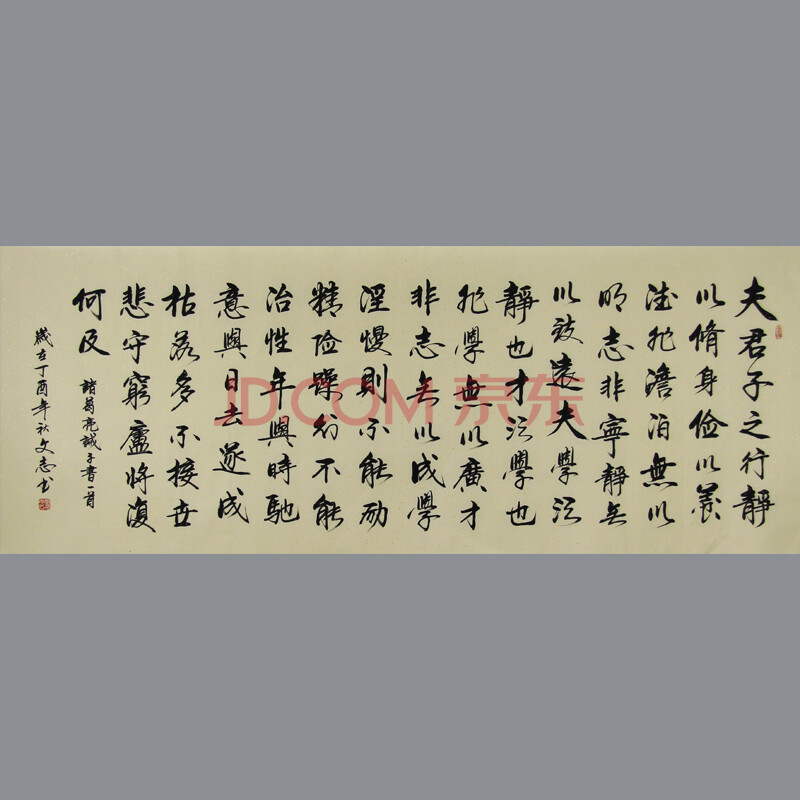 夫君子之行靜
以脩身儉以養
德非澹泊無以
明志非寧靜無
以致遠夫學須
靜也才須學也
非學無以廣才
非志無以成學
淫慢則不能勵
精險躁則不能
冶性年與時馳
意與日去遂成
枯落多不接世
悲守窮廬將復
何及
諸葛亮誡子書一首
歲在丁酉年秋文志书
JD.COM 京东